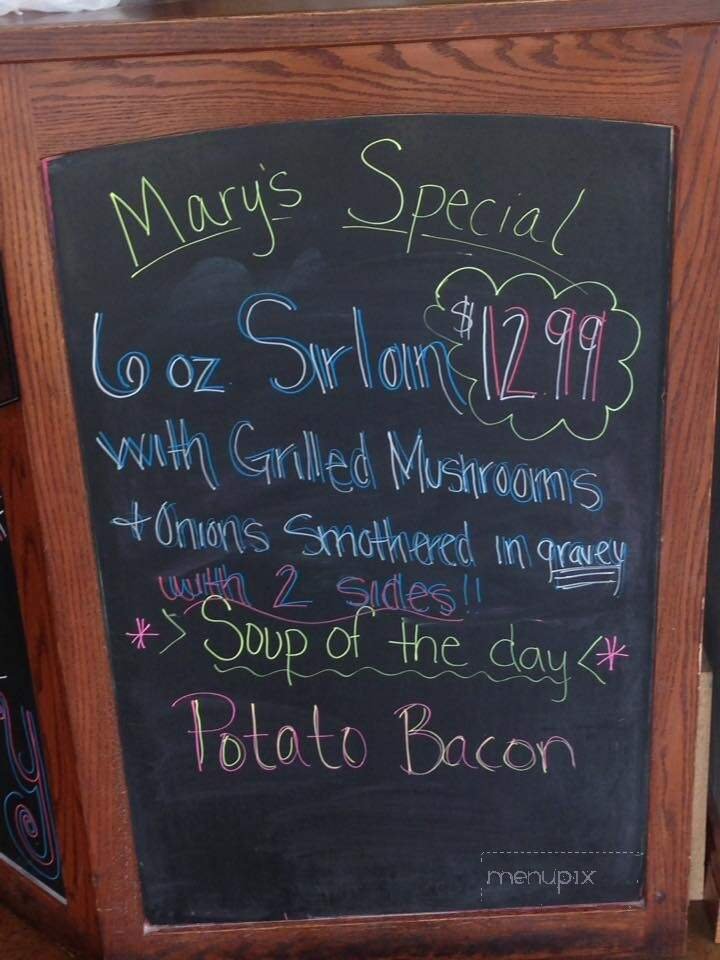 Mary's Special
6 oz. Sirloin $12.99
with Grilled Mushrooms
+ Onions Smothered in gravey
with 2 sides!!
* > Soup of the day < *
Potato Bacon
menupix